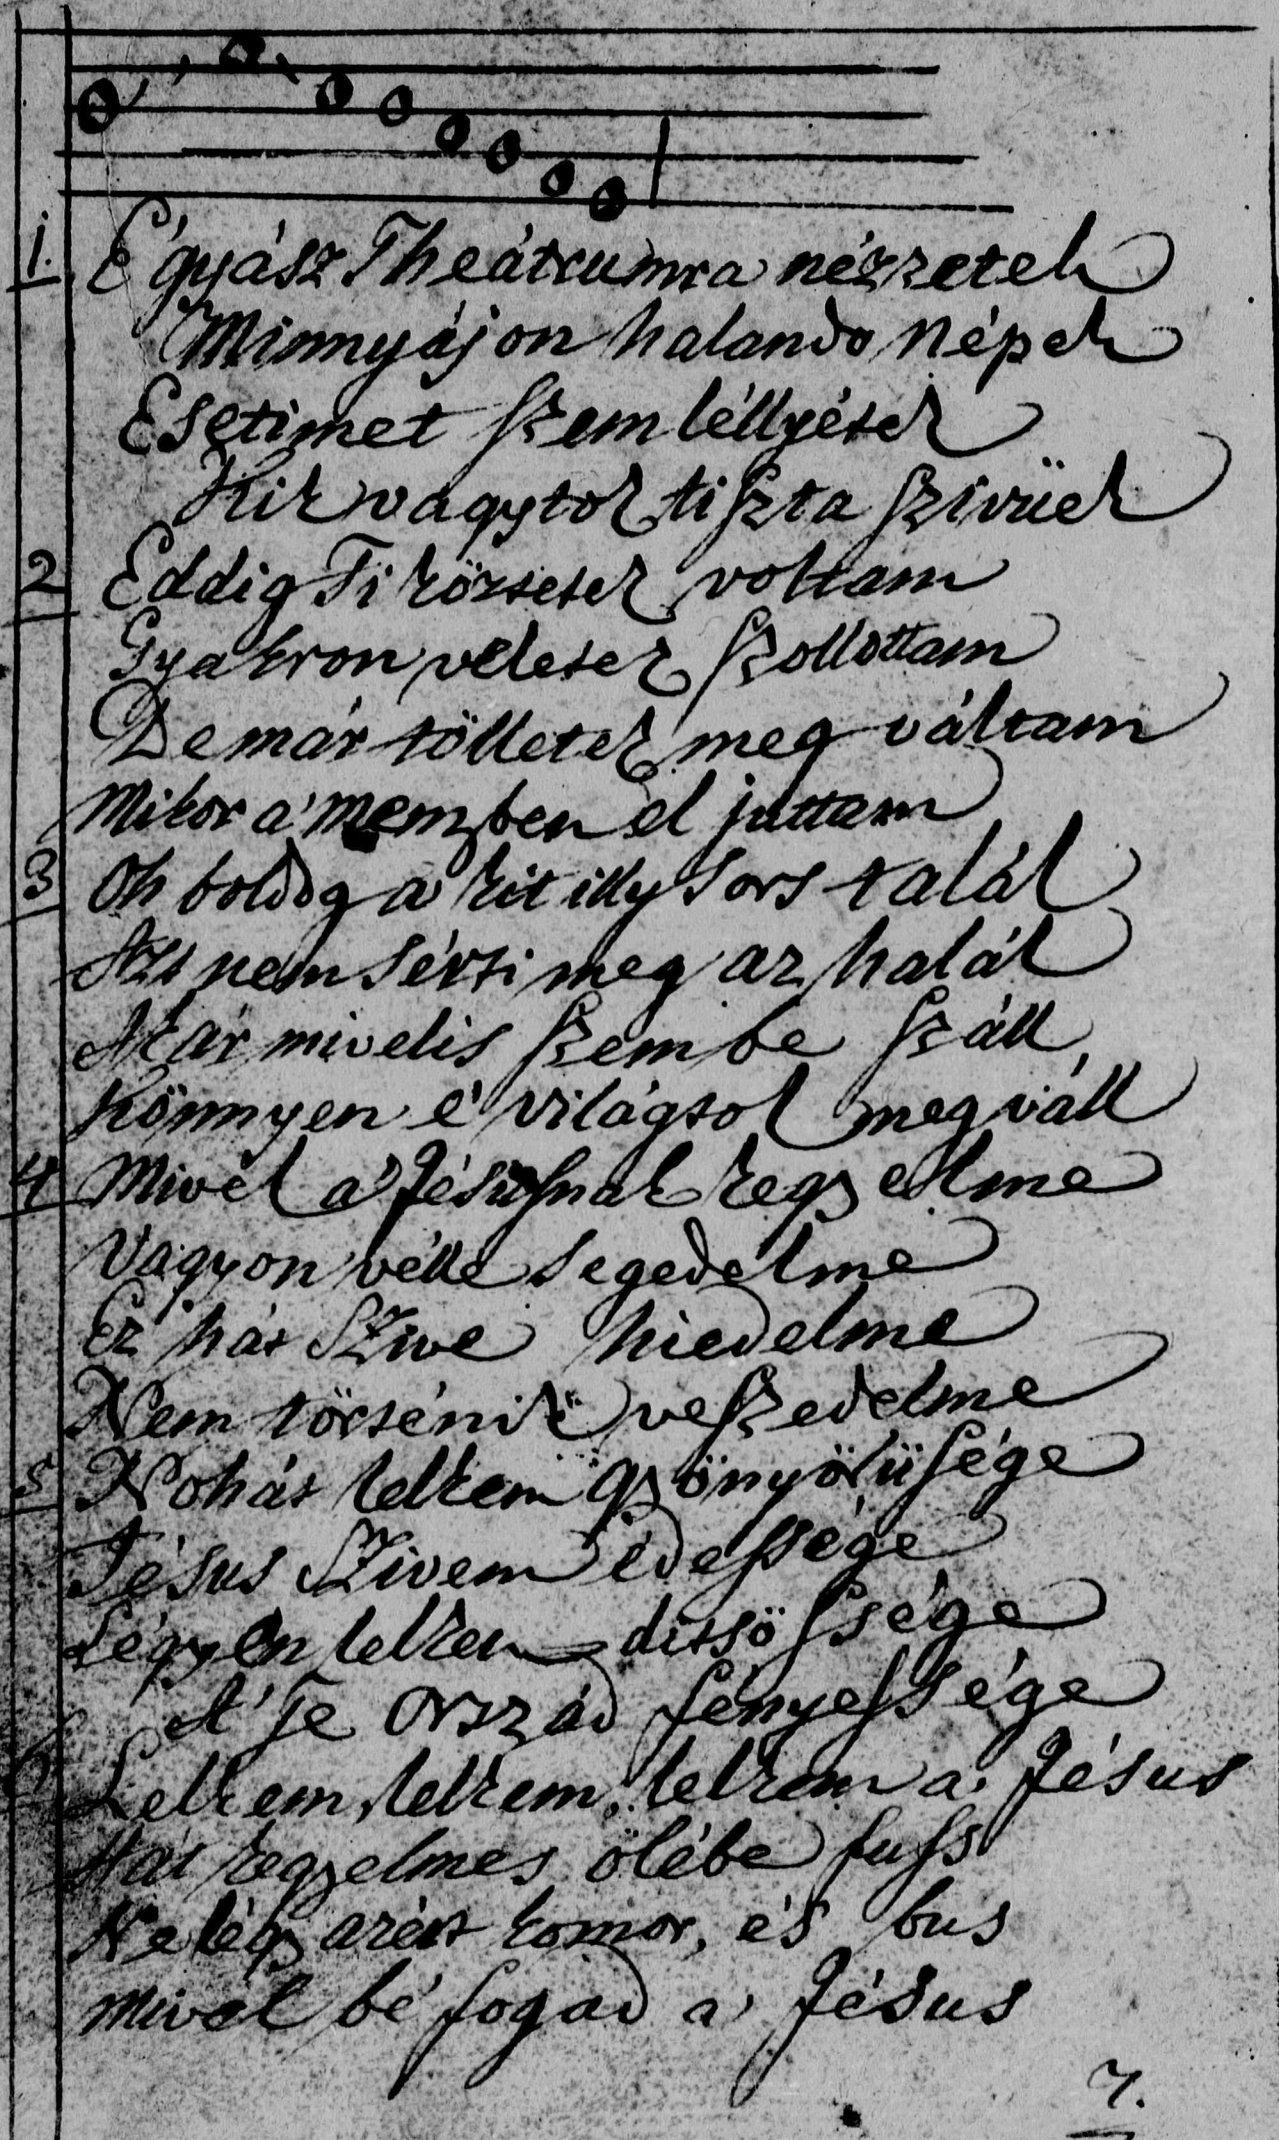 1. E' gyász Theátrumra nézzetek
Minnyájon halando Népek
Esetimet szemléllyétek
Kik vagytok tiszta szivüek
2 Eddig Ti köztetek voltam
Gyakron veletek szollottam
De már tölletek meg váltam
Mikor a' menyben el juttam
3 Oh boldog a kit illy sors talál
Azt nem sérti meg az halál
Akár mivelis szembe száll,
Könnyen é világtol meg váll
4 Mivel a' Jésusnak kegyelme
Vagyon vélle segedelme
Ez hát szive hiedelme
Nem történik veszedelme
5 Nohát lelkem gyönyörüsége
Jésus Szivem édessége
Légyen lelkem ditsössége
A' Te Orszád fényessége
6 Lelkem, lelkem, lelkem a' Jésus
Hát kegyelmes ölébe fuss
Ne légy azért komor, és bus
Mivel bé fogad a' Jésus
7.